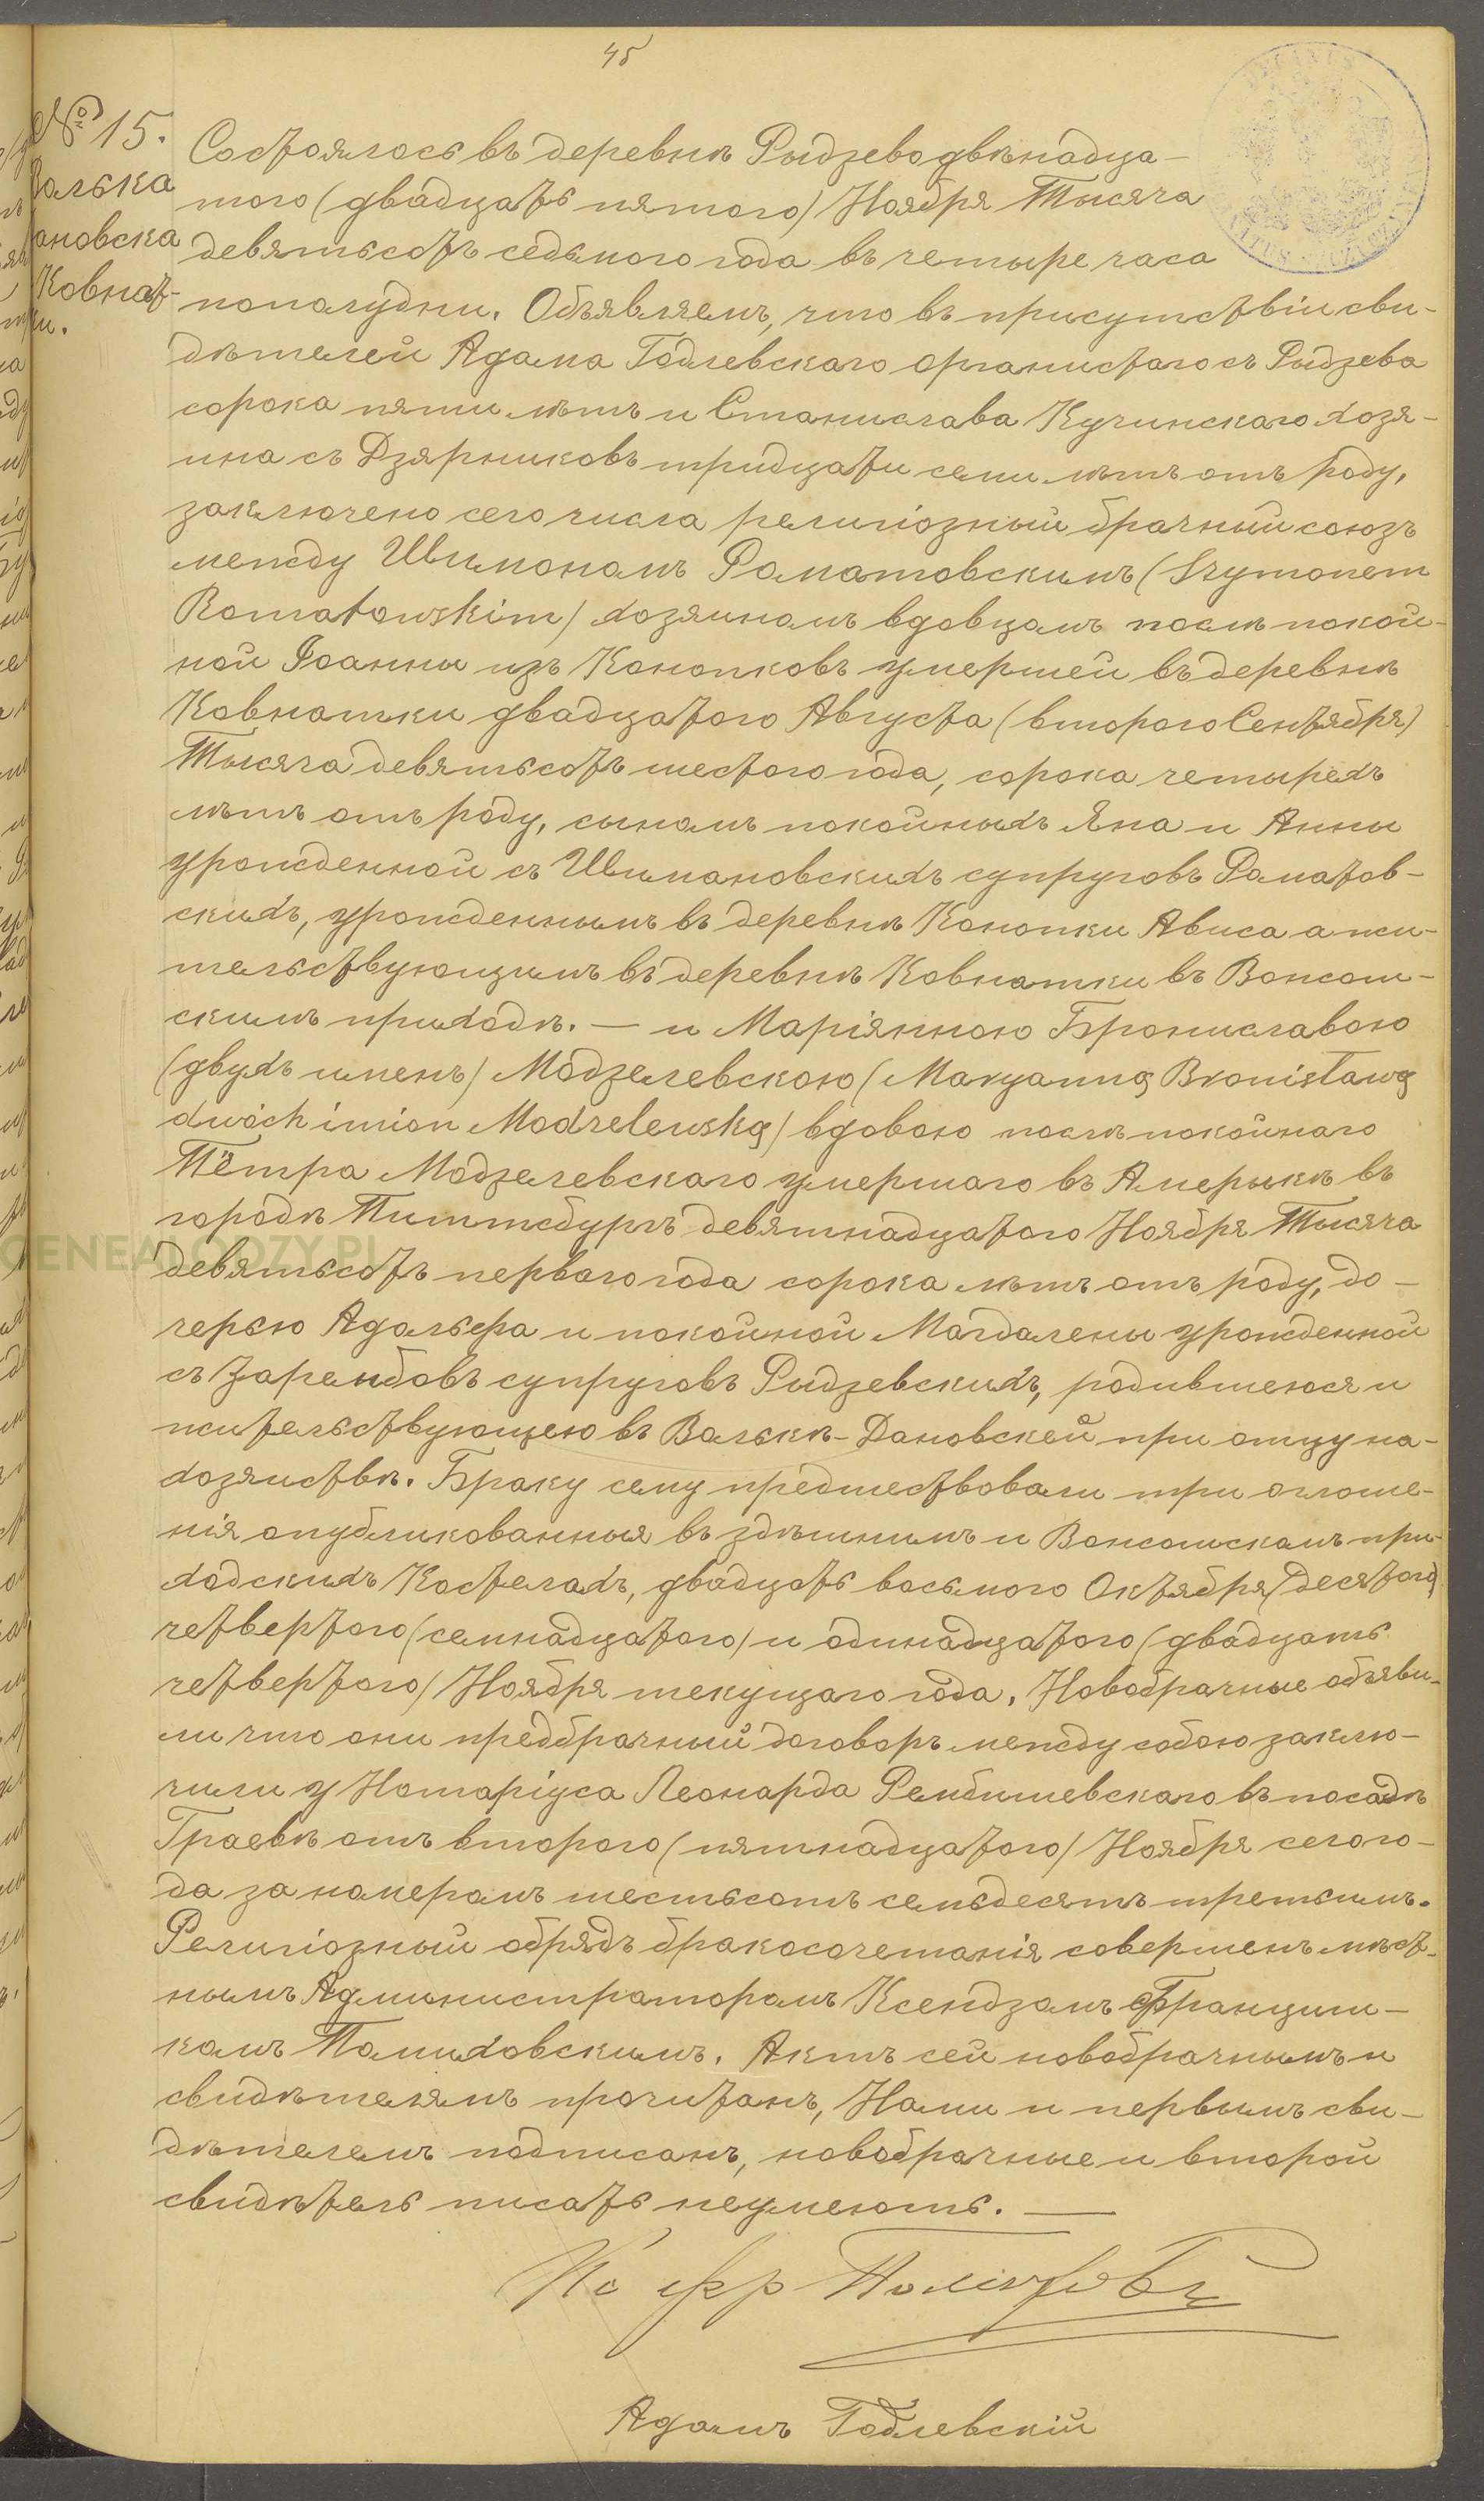 45
№ 15.
Волька
Дановска
Ковнат-
ки.
Состоялось въ деревнѣ Рыдзево двѣнадца-
того (двадцать пятого) Ноября Тысяча
девятьсотъ седьмого года въ четыре часа
пополудни. Объявляемъ, что въ присутствіи сви-
дѣтелей Адама Годлевскаго органистаго съ Рыдзева
сорока пяти лѣтъ и Станислава Кучинскаго хозя-
ина съ Дзярниковъ тридцати семи лѣтъ отъ роду,
заключено сего числа религіозный брачный союзъ
между Шимономъ Роматовскимъ (Szymonem
Romatowskim) хозяиномъ вдовцомъ послѣ покой-
ной Іоанны изъ Конопковъ умершей въ деревнѣ
Ковнатки двадцатого Августа (второго Сентября)
Тысяча девятьсотъ шестого года, сорока четырехъ
лѣтъ отъ роду, сыномъ покойныхъ Яна и Анны
урожденной съ Шимановскихъ супруговъ Роматов-
скихъ, урожденнымъ въ деревнѣ Конопки Ависа а жи-
тельствующимъ въ деревнѣ Ковнатки въ Вонсош-
скимъ приходѣ. — и Маріянною Брониславою
(двухъ именъ) Модзелевскою (Maryanną Bronisławą
dwóch imion Modzelewską) вдовою послѣ покойнаго
Пётра Модзелевскаго умершаго въ Америкѣ въ
городѣ Питтсбургъ девятнадцатого Ноября Тысяча
девятьсотъ перваго года сорока лѣтъ отъ роду, до-
черью Адольфа и покойной Магдалены урожденной
съ Зарембовъ супруговъ Рыдзевскихъ, родившеюся и
жительствующею въ Волькѣ-Дановской при отцу на-
хозяйствѣ. Браку сему предшествовали три оглаше-
нія опубликованныя въ здѣшнимъ и Вонсошскомъ при-
ходскихъ Костелахъ, двадцать восьмого Октября (десятого)
четвертого (семнадцатого) и одинадцатого (двадцать
четвертого) Ноября текущаго года. Новобрачные объяви-
ли что они предбрачный договоръ между собою заклю-
чили у Нотаріуса Леонарда Рембишевскаго въ посадѣ
Граевѣ отъ второго (пятнадцатого) Ноября сего го-
да за номеромъ шестьсотъ семьдесятъ третьимъ.
Религіозный обрядъ бракосочетанія совершенъ мѣст-
нымъ Администраторомъ Ксендзомъ Францищ-
комъ Помиховскимъ. Актъ сей новобрачнымъ и
свидѣтелямъ прочитанъ, Нами и первымъ сви-
дѣтелемъ подписанъ, новобрачные и второй
свидѣтель писать неумеютъ. —
Адамъ Годлевскій
GENEALODZY.PL